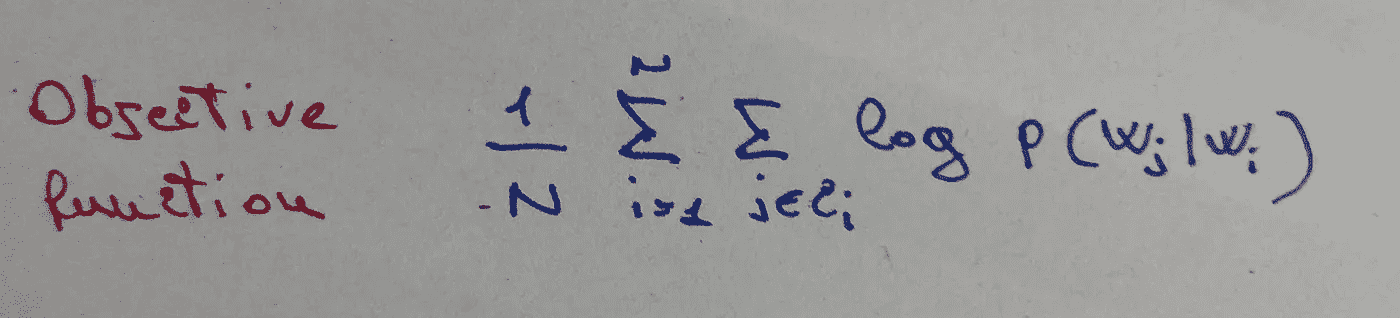 Objective
function
1/N ∑_{i=1}^{N} ∑_{j∈C_i} log p(w_j|w_i)